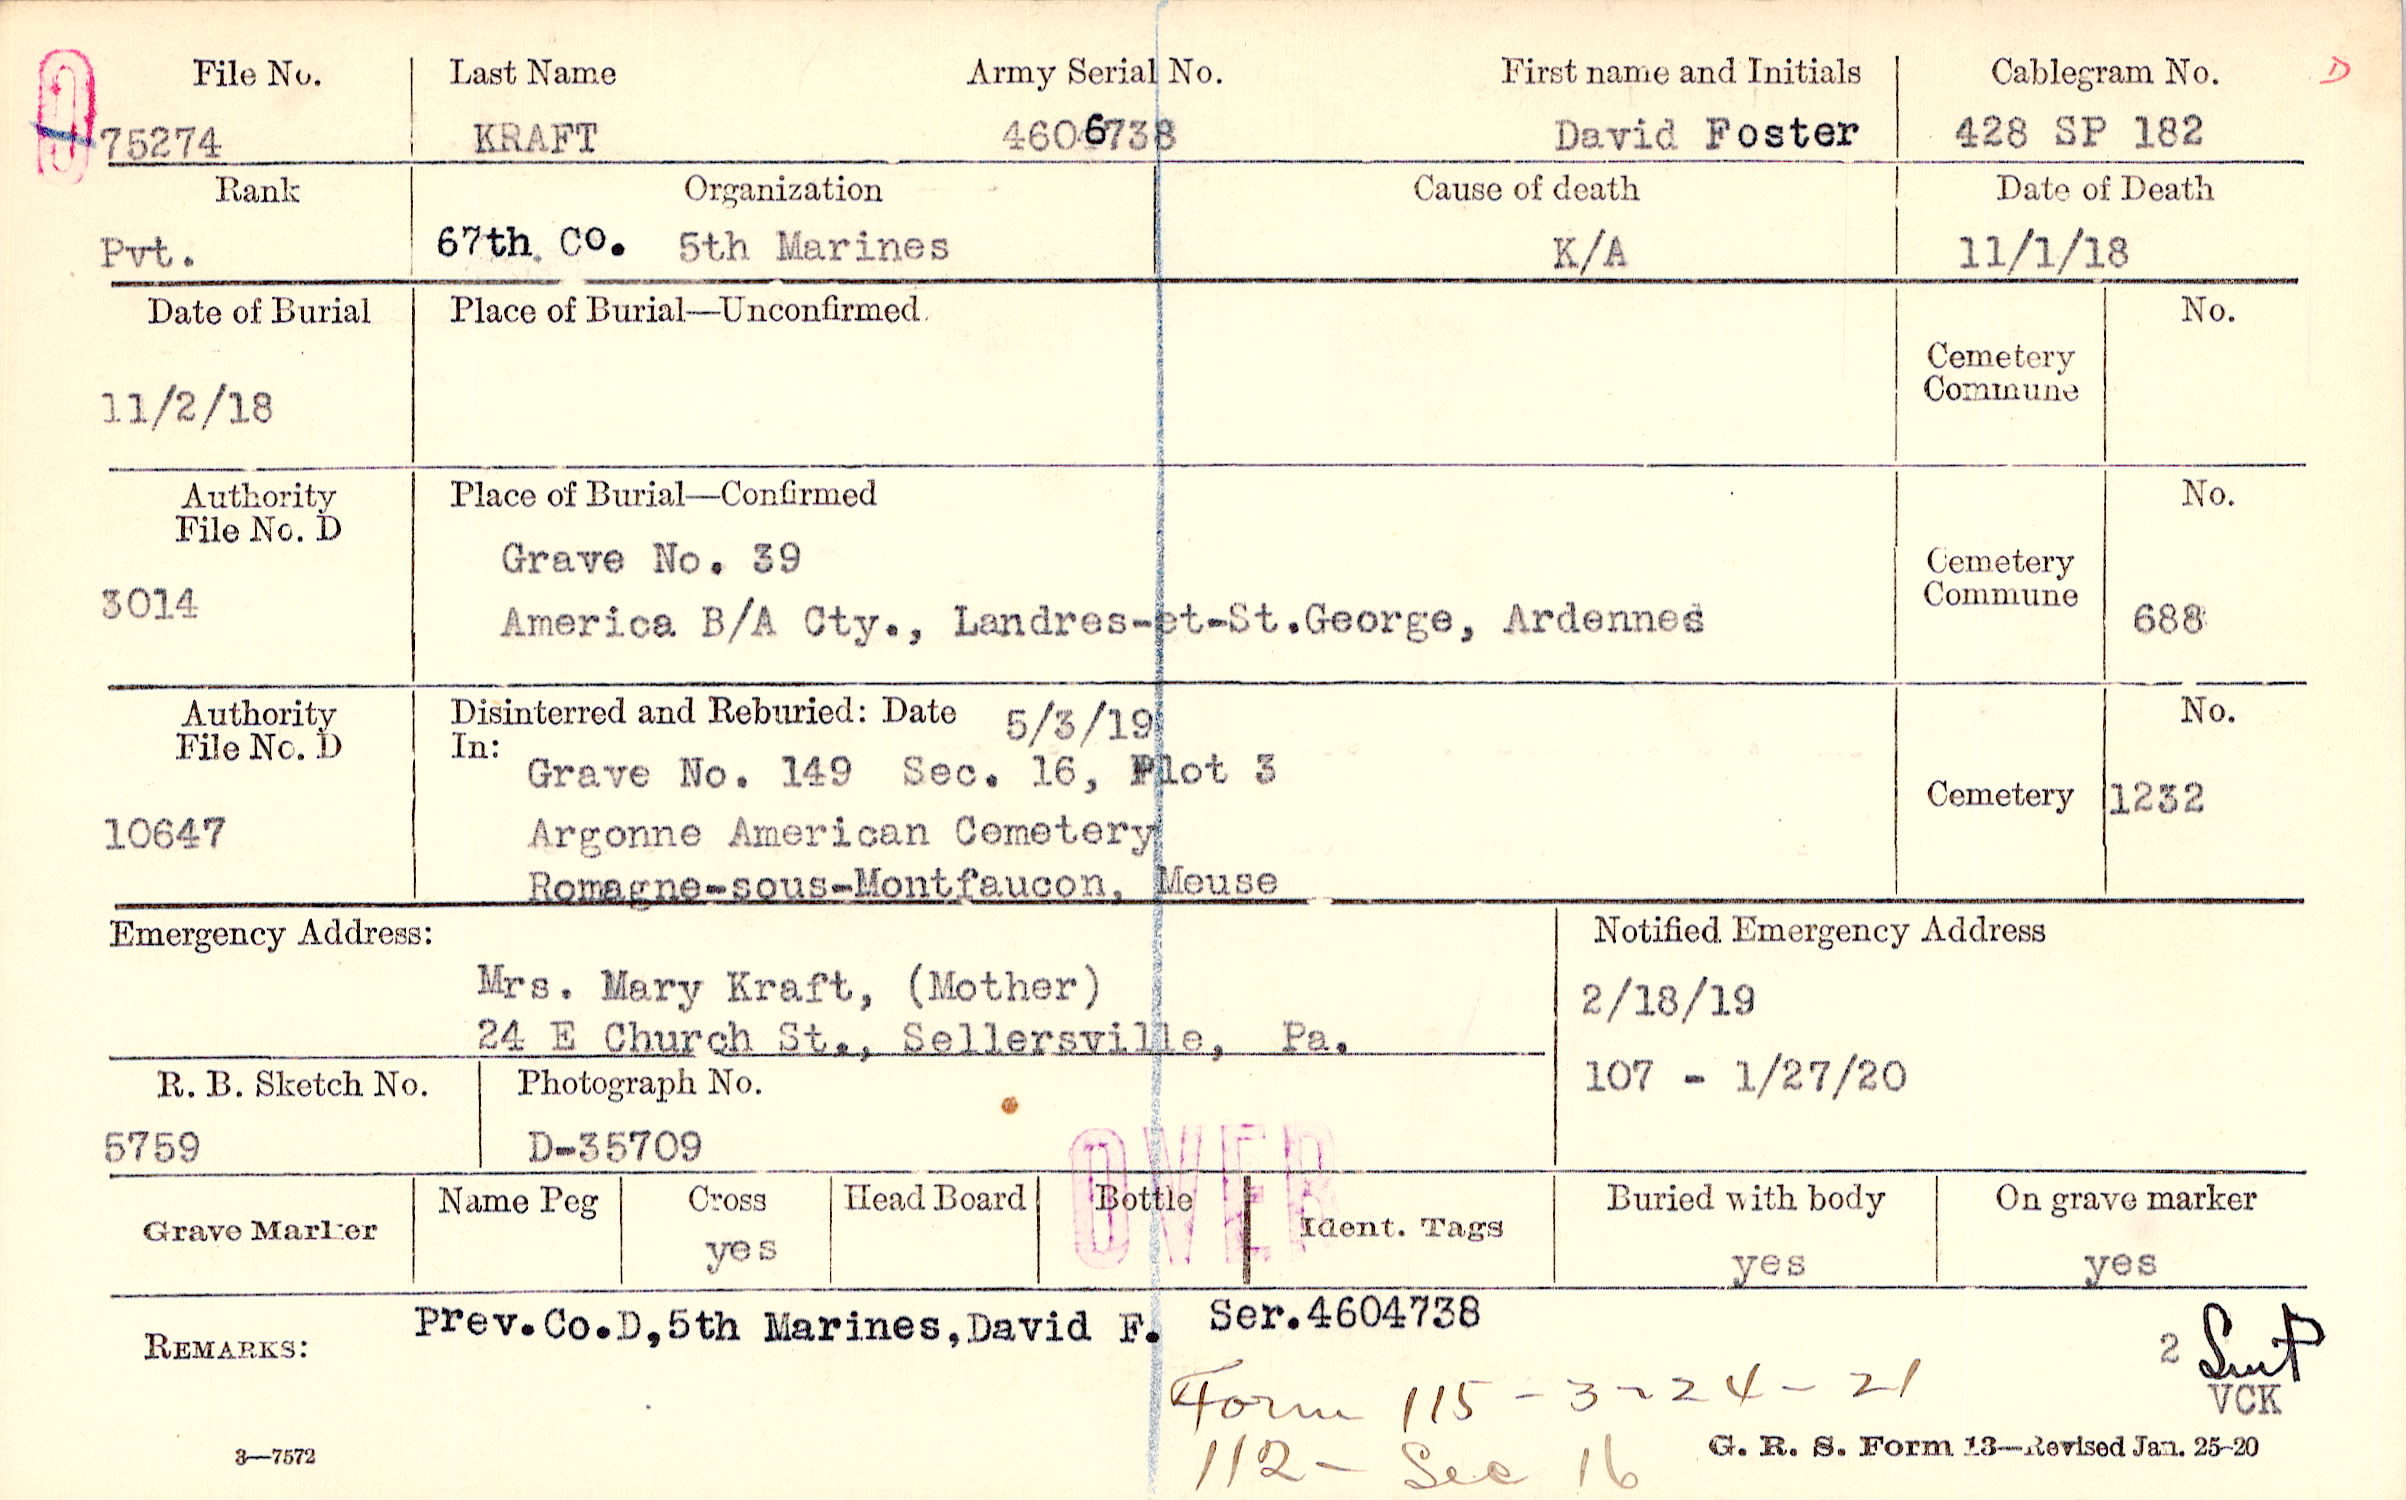 File No. Last Name Army Serial No. First name and Initials Cablegram No. D
75274 KRAFT 4606738 David Foster 428 SP 182
Rank Organization Cause of death Date of Death
Pvt. 67th. Co. 5th Marines K/A 11/1/18
Date of Burial Place of Burial—Unconfirmed No.
Cemetery
Commune
11/2/18
Authority Place of Burial—Confirmed No.
File No. D
Grave No. 39 Cemetery
3014 Commune
America B/A Cty., Landres-et-St.George, Ardennes 688
Authority Disinterred and Reburied: Date 5/3/19 No.
File No. D In:
Grave No. 149 Sec. 16, Plot 3
Cemetery 1232
10647 Argonne American Cemetery
Romagne-sous-Montfaucon, Meuse
Emergency Address: Notified Emergency Address
Mrs. Mary Kraft, (Mother) 2/18/19
24 E Church St., Sellersville, Pa.
R. B. Sketch No. Photograph No. 107 - 1/27/20
5759 D-35709
OVER
Grave Marker Name Peg Cross Head Board Bottle Ident. Tags Buried with body On grave marker
yes yes yes
REMARKS: Prev.Co.D,5th Marines,David F. Ser.4604738
2
Form 115-3-24-21
VCK
112- Sec 16
3—7572 G. R. S. Form 13—Revised Jan. 25-20